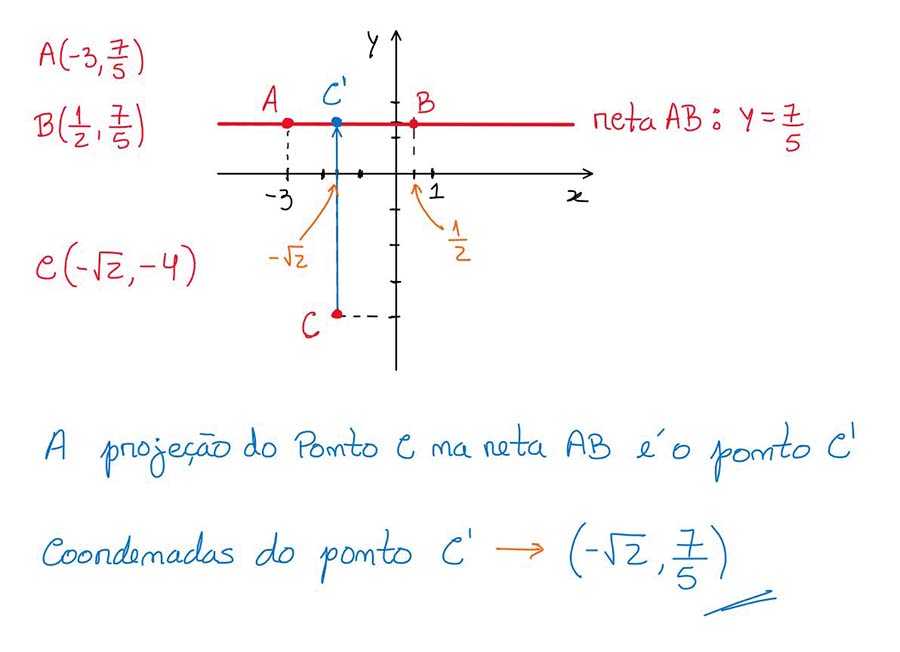 A(-3, 7/5)
B(1/2, 7/5)
C(-√2, -4)
y
A
C'
B
reta AB: y = 7/5
-3
1
x
-√2
1/2
C
A projeção do Ponto C na reta AB é o ponto C'
Coordenadas do ponto C' → (-√2, 7/5)